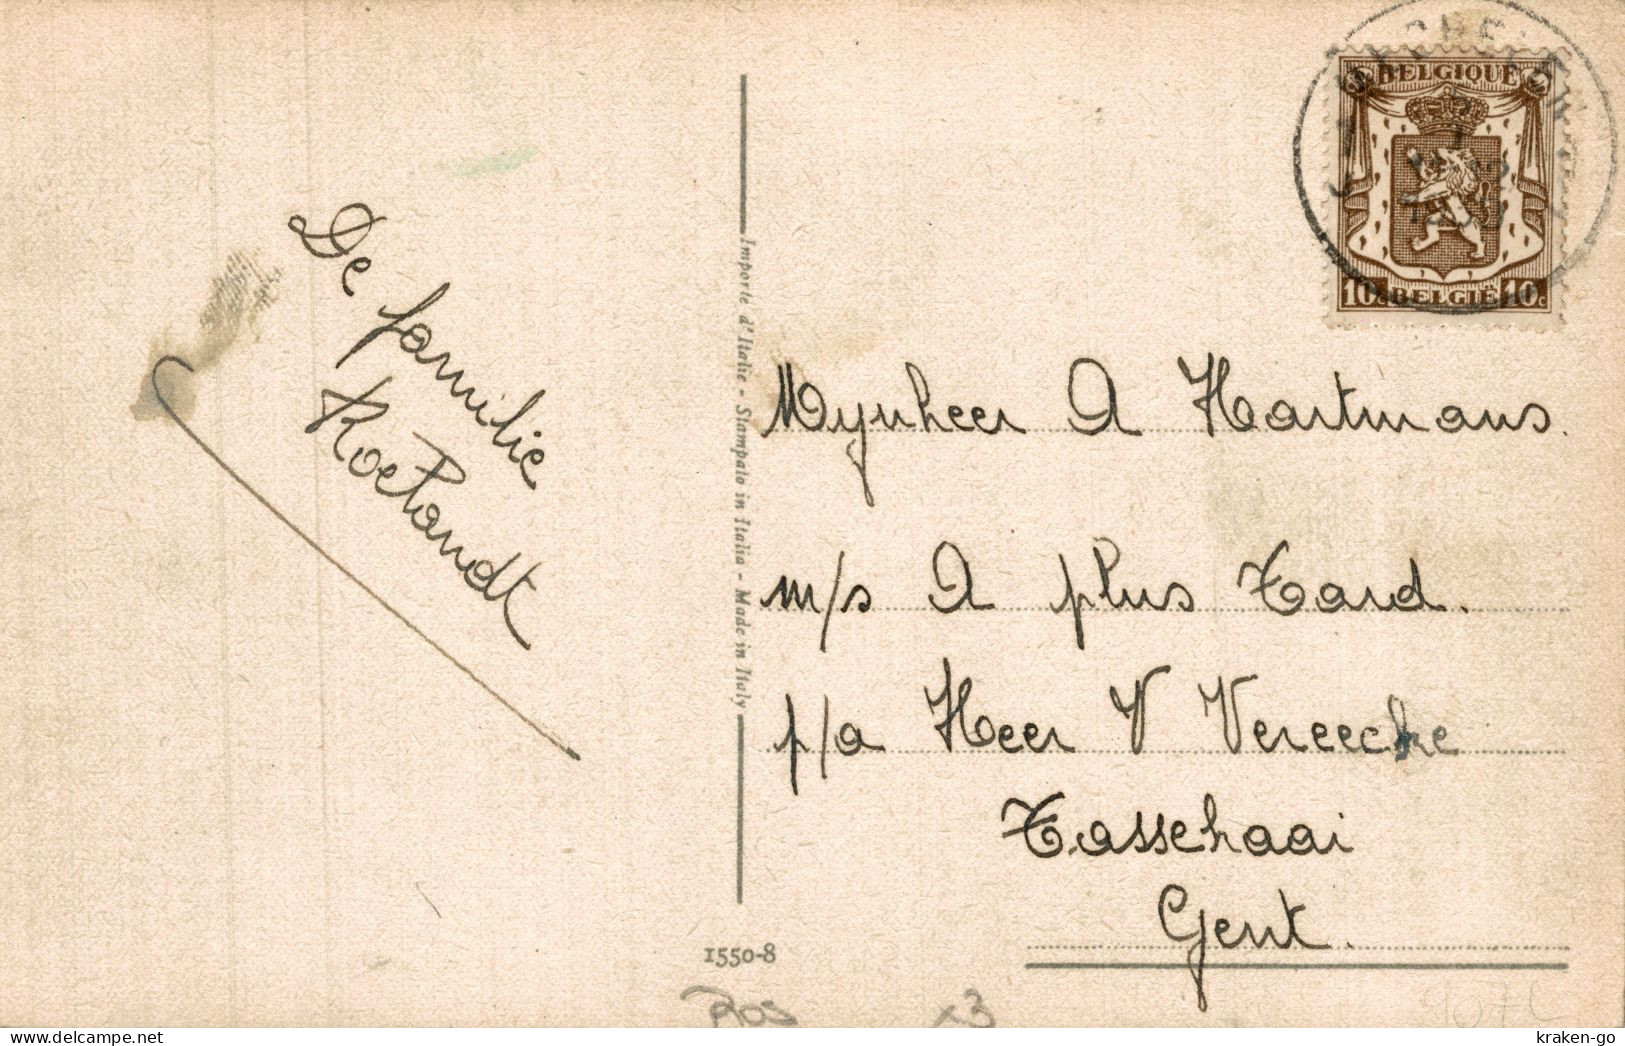 BELGIQUE
10c BELGIË 10c
De familie
Roelandt
Importe d'Italie - Stampato in Italia - Made in Italy
Mynheer A Hartmans.
m/s A plus Tard.
p/a Heer V Vereecke
Tassehaai
Gent.
1550-8
ROS x3
kraken-go